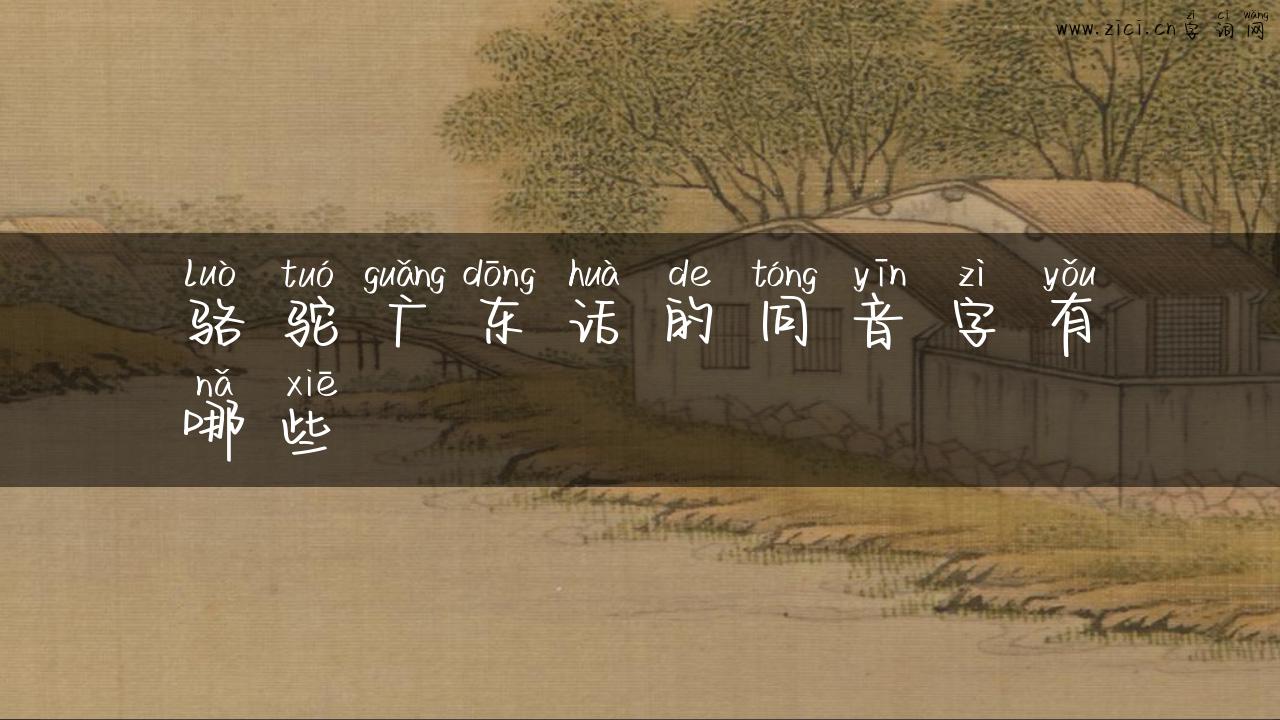 zì cí wǎng
www.zici.cn字词网
luò tuó guǎng dōng huà de tóng yīn zì yǒu
骆驼广东话的同音字有
nǎ xiē
哪些